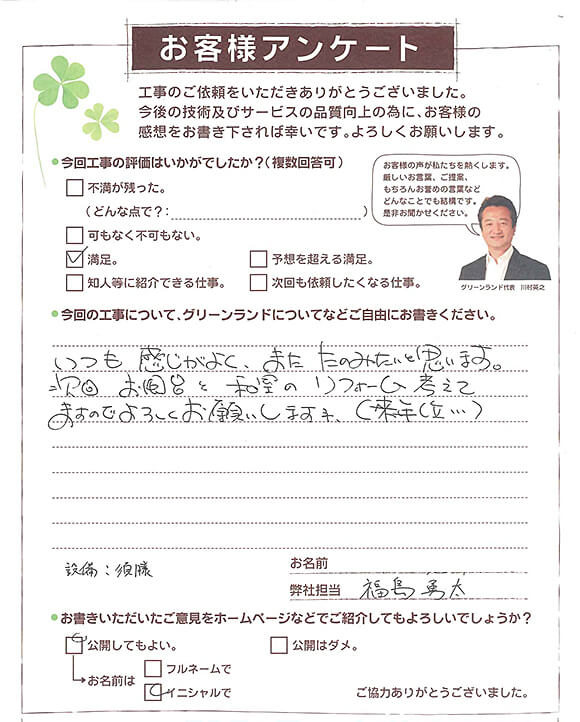 お客様アンケート
工事のご依頼をいただきありがとうございました。
今後の技術及びサービスの品質向上の為に、お客様の
感想をお書き下されば幸いです。よろしくお願いします。
今回工事の評価はいかがでしたか?(複数回答可)
お客様の声が私たちを熱くします。
厳しいお言葉、ご提案、
もちろんお誉めの言葉など
どんなことでも結構です。
是非お聞かせください。
グリーンランド代表 川村英之
不満が残った。
(どんな点で?: )
可もなく不可もない。
満足。 予想を超える満足。
知人等に紹介できる仕事。 次回も依頼したくなる仕事。
今回の工事について、グリーンランドについてなどご自由にお書きください。
いつも感じがよく、また たのみたいと思います。
次回 お風呂と和室のリフォーム考えて
ますのでよろしくお願いします、(来年位…)
設備:須藤
お名前
弊社担当 福島 勇太
お書きいただいたご意見をホームページなどでご紹介してもよろしいでしょうか?
公開してもよい。 公開はダメ。
お名前は フルネームで
イニシャルで
ご協力ありがとうございました。